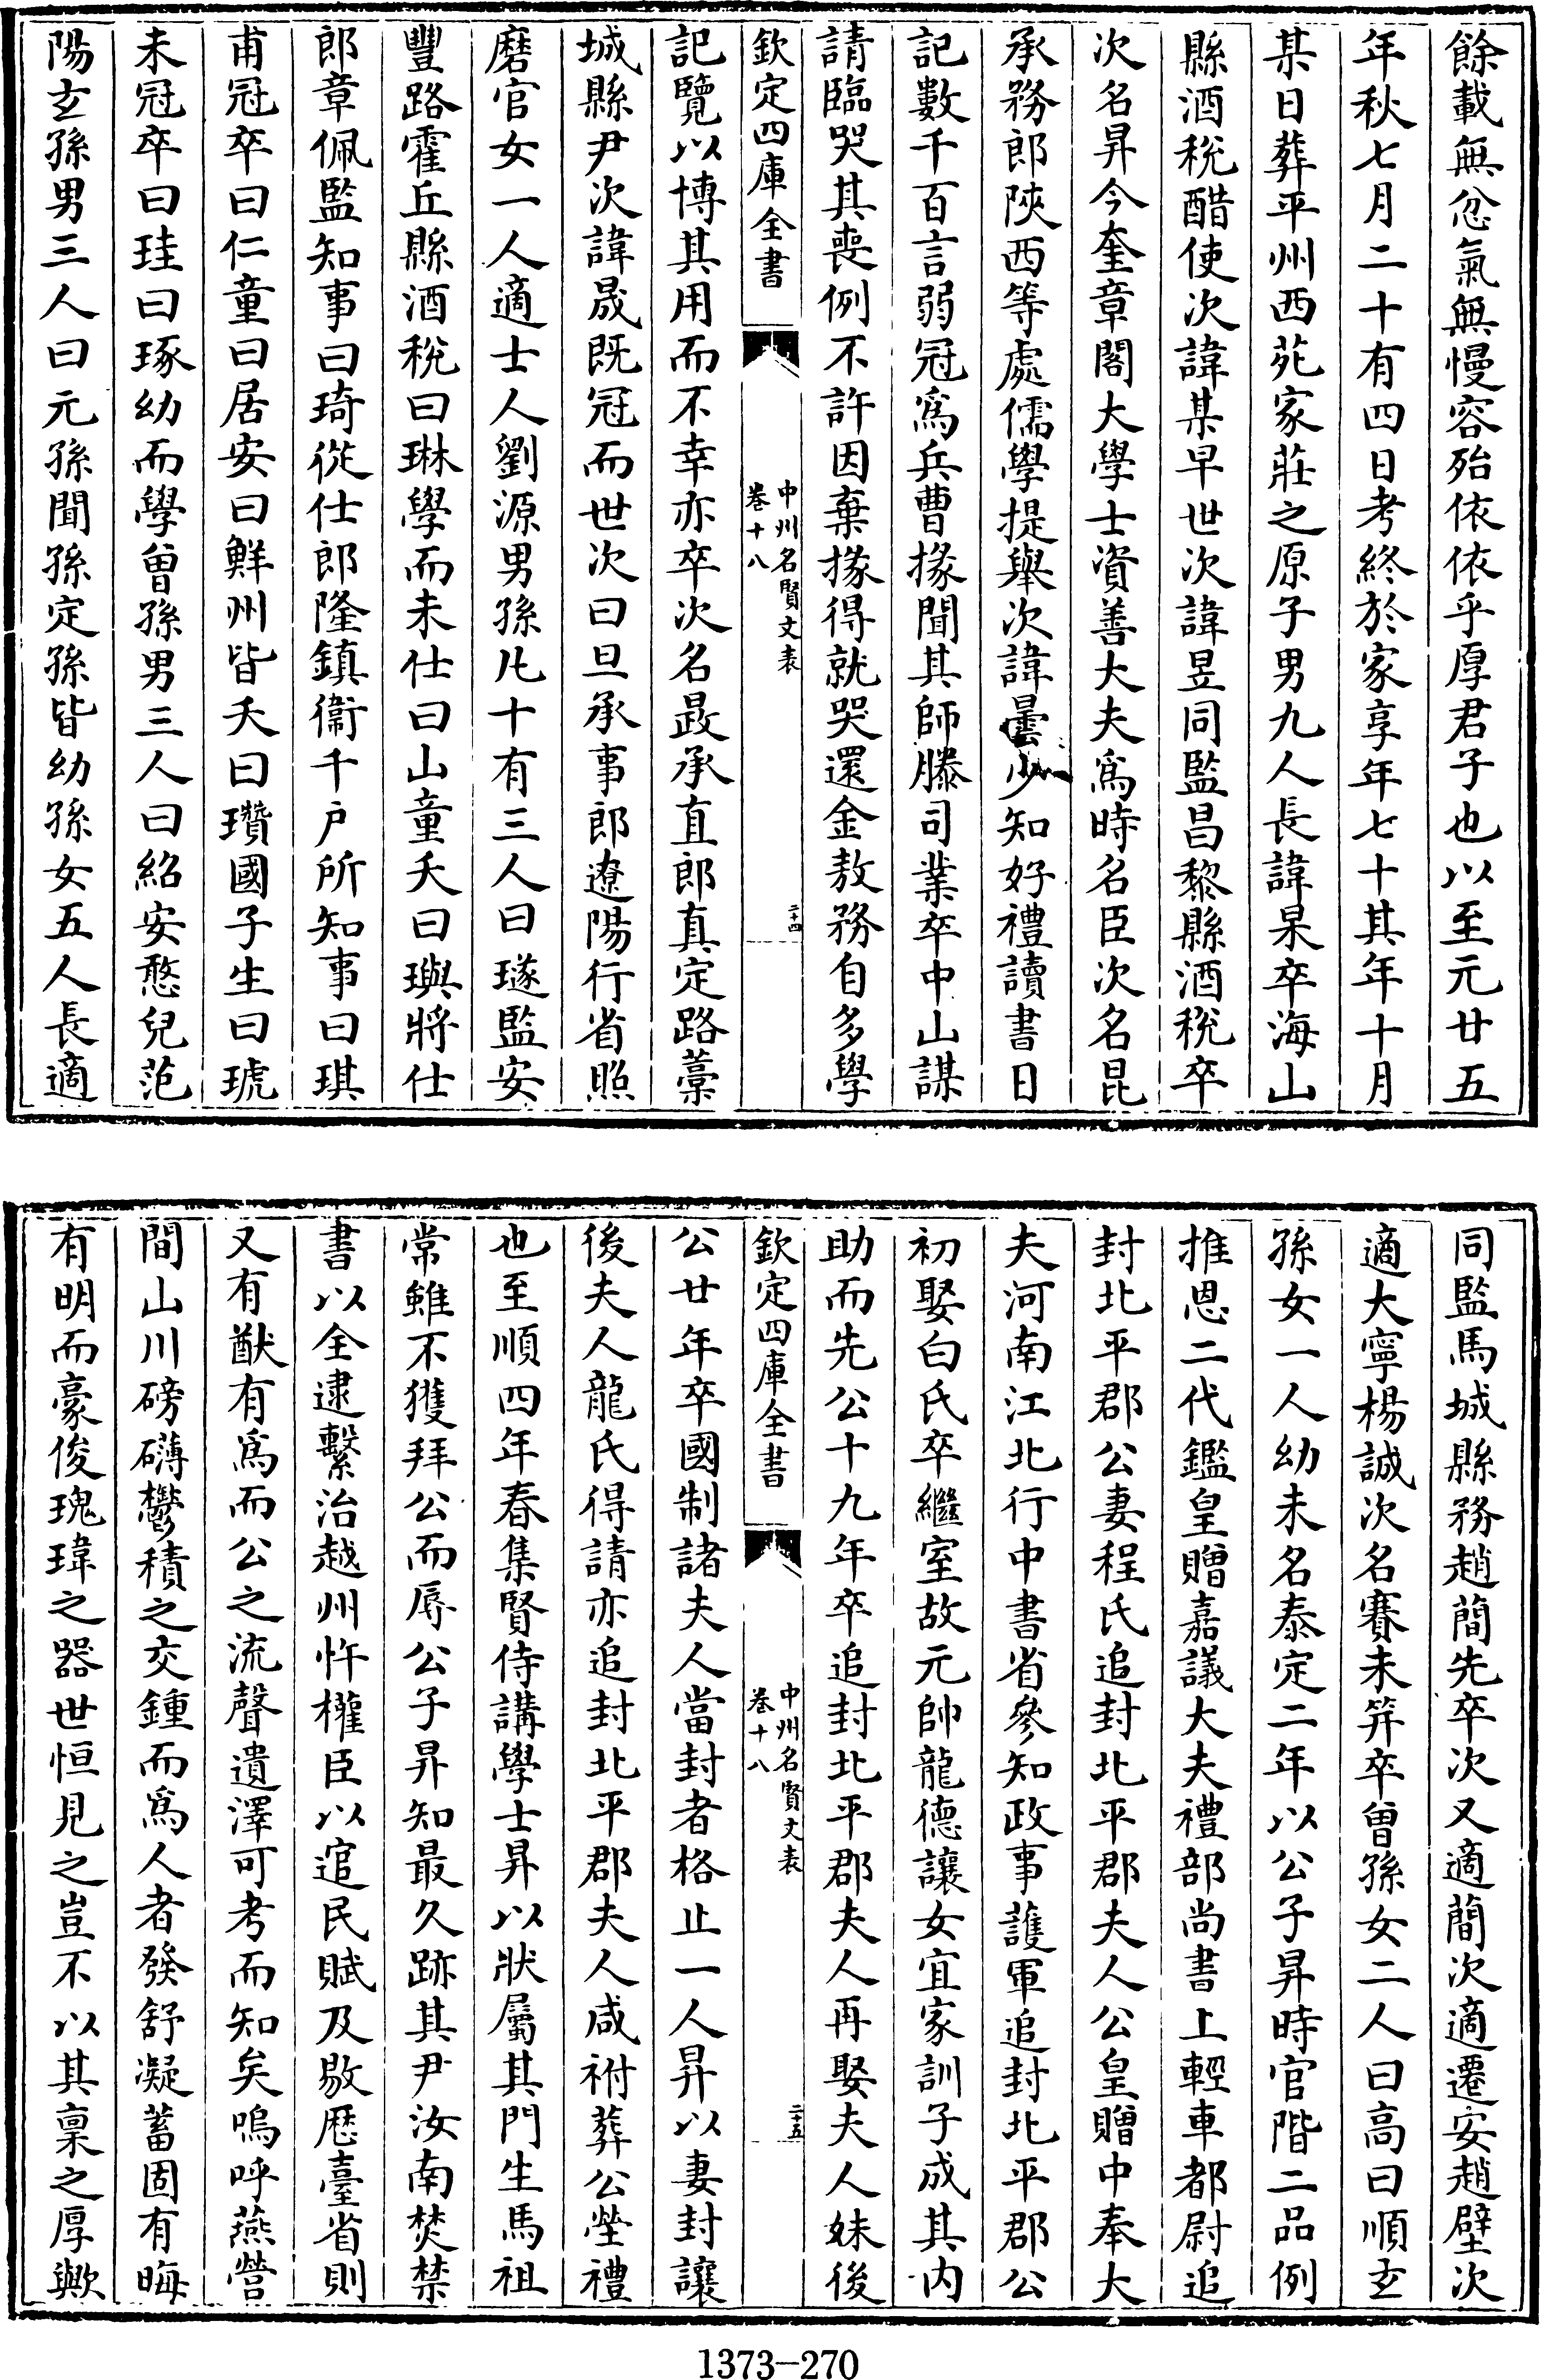 餘載無忿氣無慢容殆依依乎厚君子也以至元廿五
年秋七月二十有四日考終於家享年七十其年十月
某日葬平州西苑家莊之原子男九人長諱杲卒海山
縣酒稅醋使次諱某早世次諱昱同監昌黎縣酒稅卒
次名昇今奎章閣大學士資善大夫為時名臣次名昆
承務郎陜西等處儒學提舉次諱曇少知好禮讀書日
記數千百言弱冠為兵曹掾聞其師滕司業卒中山謀
請臨哭其喪例不許因棄掾得就哭還金敖務自多學
欽定四庫全書
中州名賢文表
卷十八
二十四
記覽以博其用而不幸亦卒次名晸承直郎真定路藁
城縣尹次諱晟既冠而世次曰旦承事郎遼陽行省照
磨官女一人適士人劉源男孫凡十有三人曰璲監安
豐路霍丘縣酒稅曰琳學而未仕曰山童夭曰璵將仕
郎章佩監知事曰琦從仕郎隆鎮衞千戶所知事曰琪
甫冠卒曰仁童曰居安曰鮮州皆夭曰瓚國子生曰琥
未冠卒曰珪曰琢幼而學曾孫男三人曰紹安憨兒范
陽玄孫男三人曰元孫聞孫定孫皆幼孫女五人長適
同監馬城縣務趙蕑先卒次又適蕑次適遷安趙璧次
適大寧楊誠次名賽未笄卒曾孫女二人曰高曰順玄
孫女一人幼未名泰定二年以公子昇時官階二品例
推恩二代鑑皇贈嘉議大夫禮部尚書上輕車都尉追
封北平郡公妻程氏追封北平郡夫人公皇贈中奉大
夫河南江北行中書省參知政事護軍追封北平郡公
初娶白氏卒繼室故元帥龍德讓女宜家訓子成其內
助而先公十九年卒追封北平郡夫人再娶夫人妹後
欽定四庫全書
中州名賢文表
卷十八
二十五
公廿年卒國制諸夫人當封者格止一人昇以妻封讓
後夫人龍氏得請亦追封北平郡夫人咸祔葬公塋禮
也至順四年春集賢侍講學士昇以狀屬其門生馬祖
常雖不獲拜公而辱公子昇知最久跡其尹汝南焚禁
書以全逮繫治越州忤權臣以逭民賦及敭歷臺省則
又有猷有為而公之流聲遺澤可考而知矣嗚呼燕營
間山川磅礴鬱積之交鍾而為人者發舒凝蓄固有晦
有明而豪俊瑰瑋之器世恒見之豈不以其稟之厚歟
1373-270